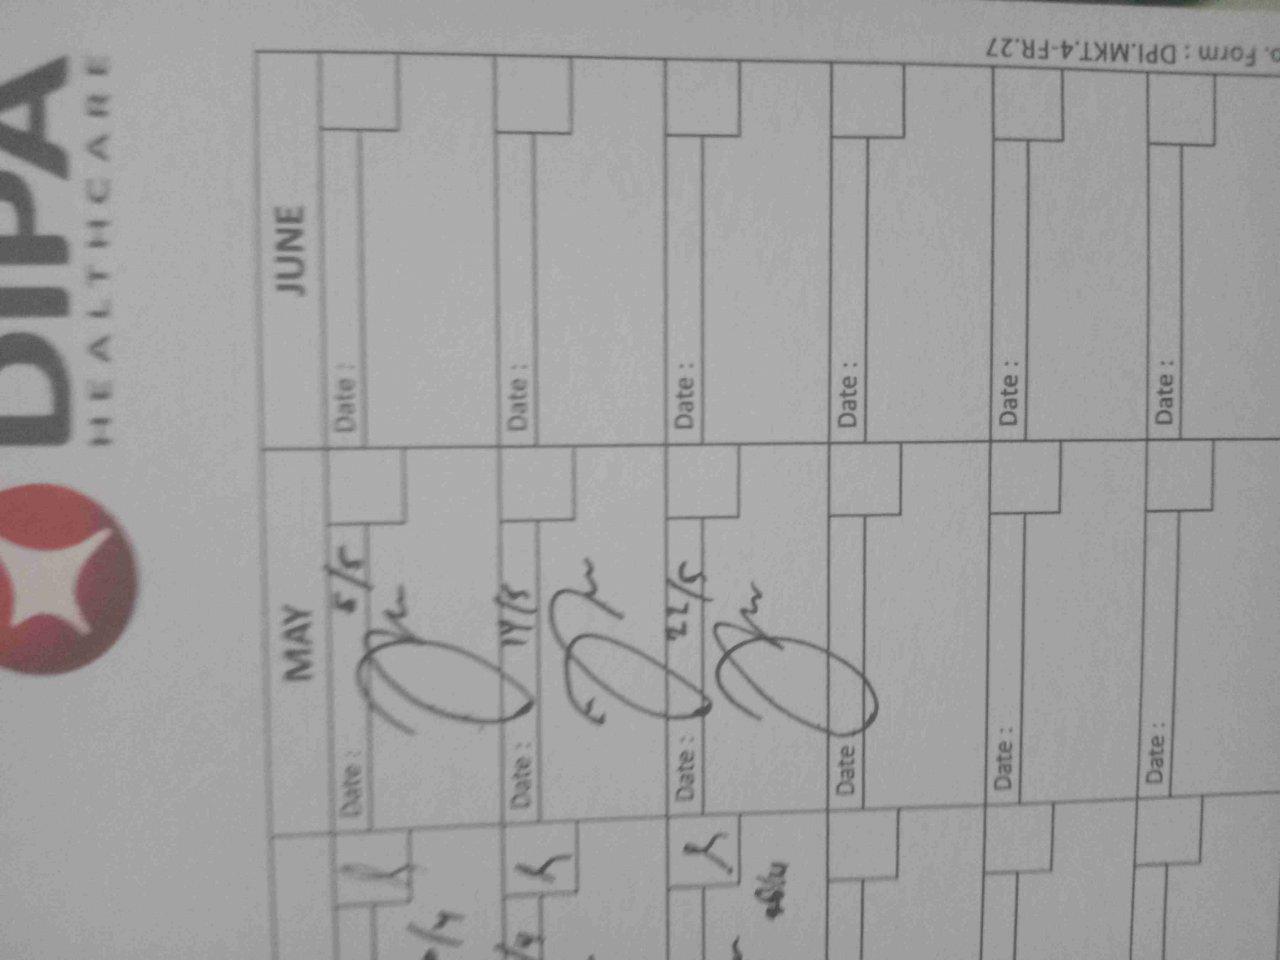 DIPA
HEALTHCARE
MAY
JUNE
Date : 5/5
Date :
Date : 14/5
Date :
Date : 22/5
Date :
Date :
Date :
Date :
Date :
Date :
Date :
o. Form : DPI.MKT.4-FR.27